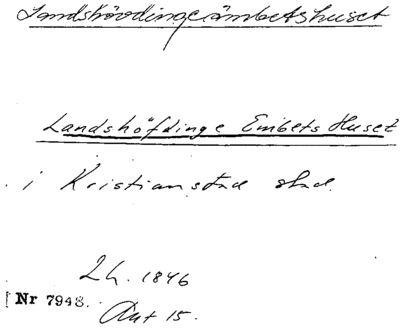 Landshövdingeämbetshuset
Landshöfdinge Embets Huset
i Kristianstad stad.
Lh. 1846
Nr 7948.
Ant 15.